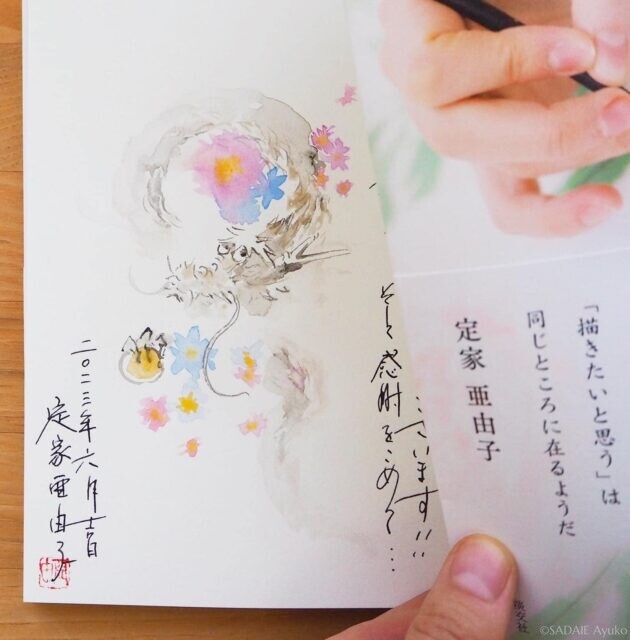 「描きたいと思う」は
同じところに在るようだ
定家 亜由子
淡交社
います!!
そして感謝をこめて…
二〇二三年六月吉日
定家亜由子
©SADAIE Ayuko